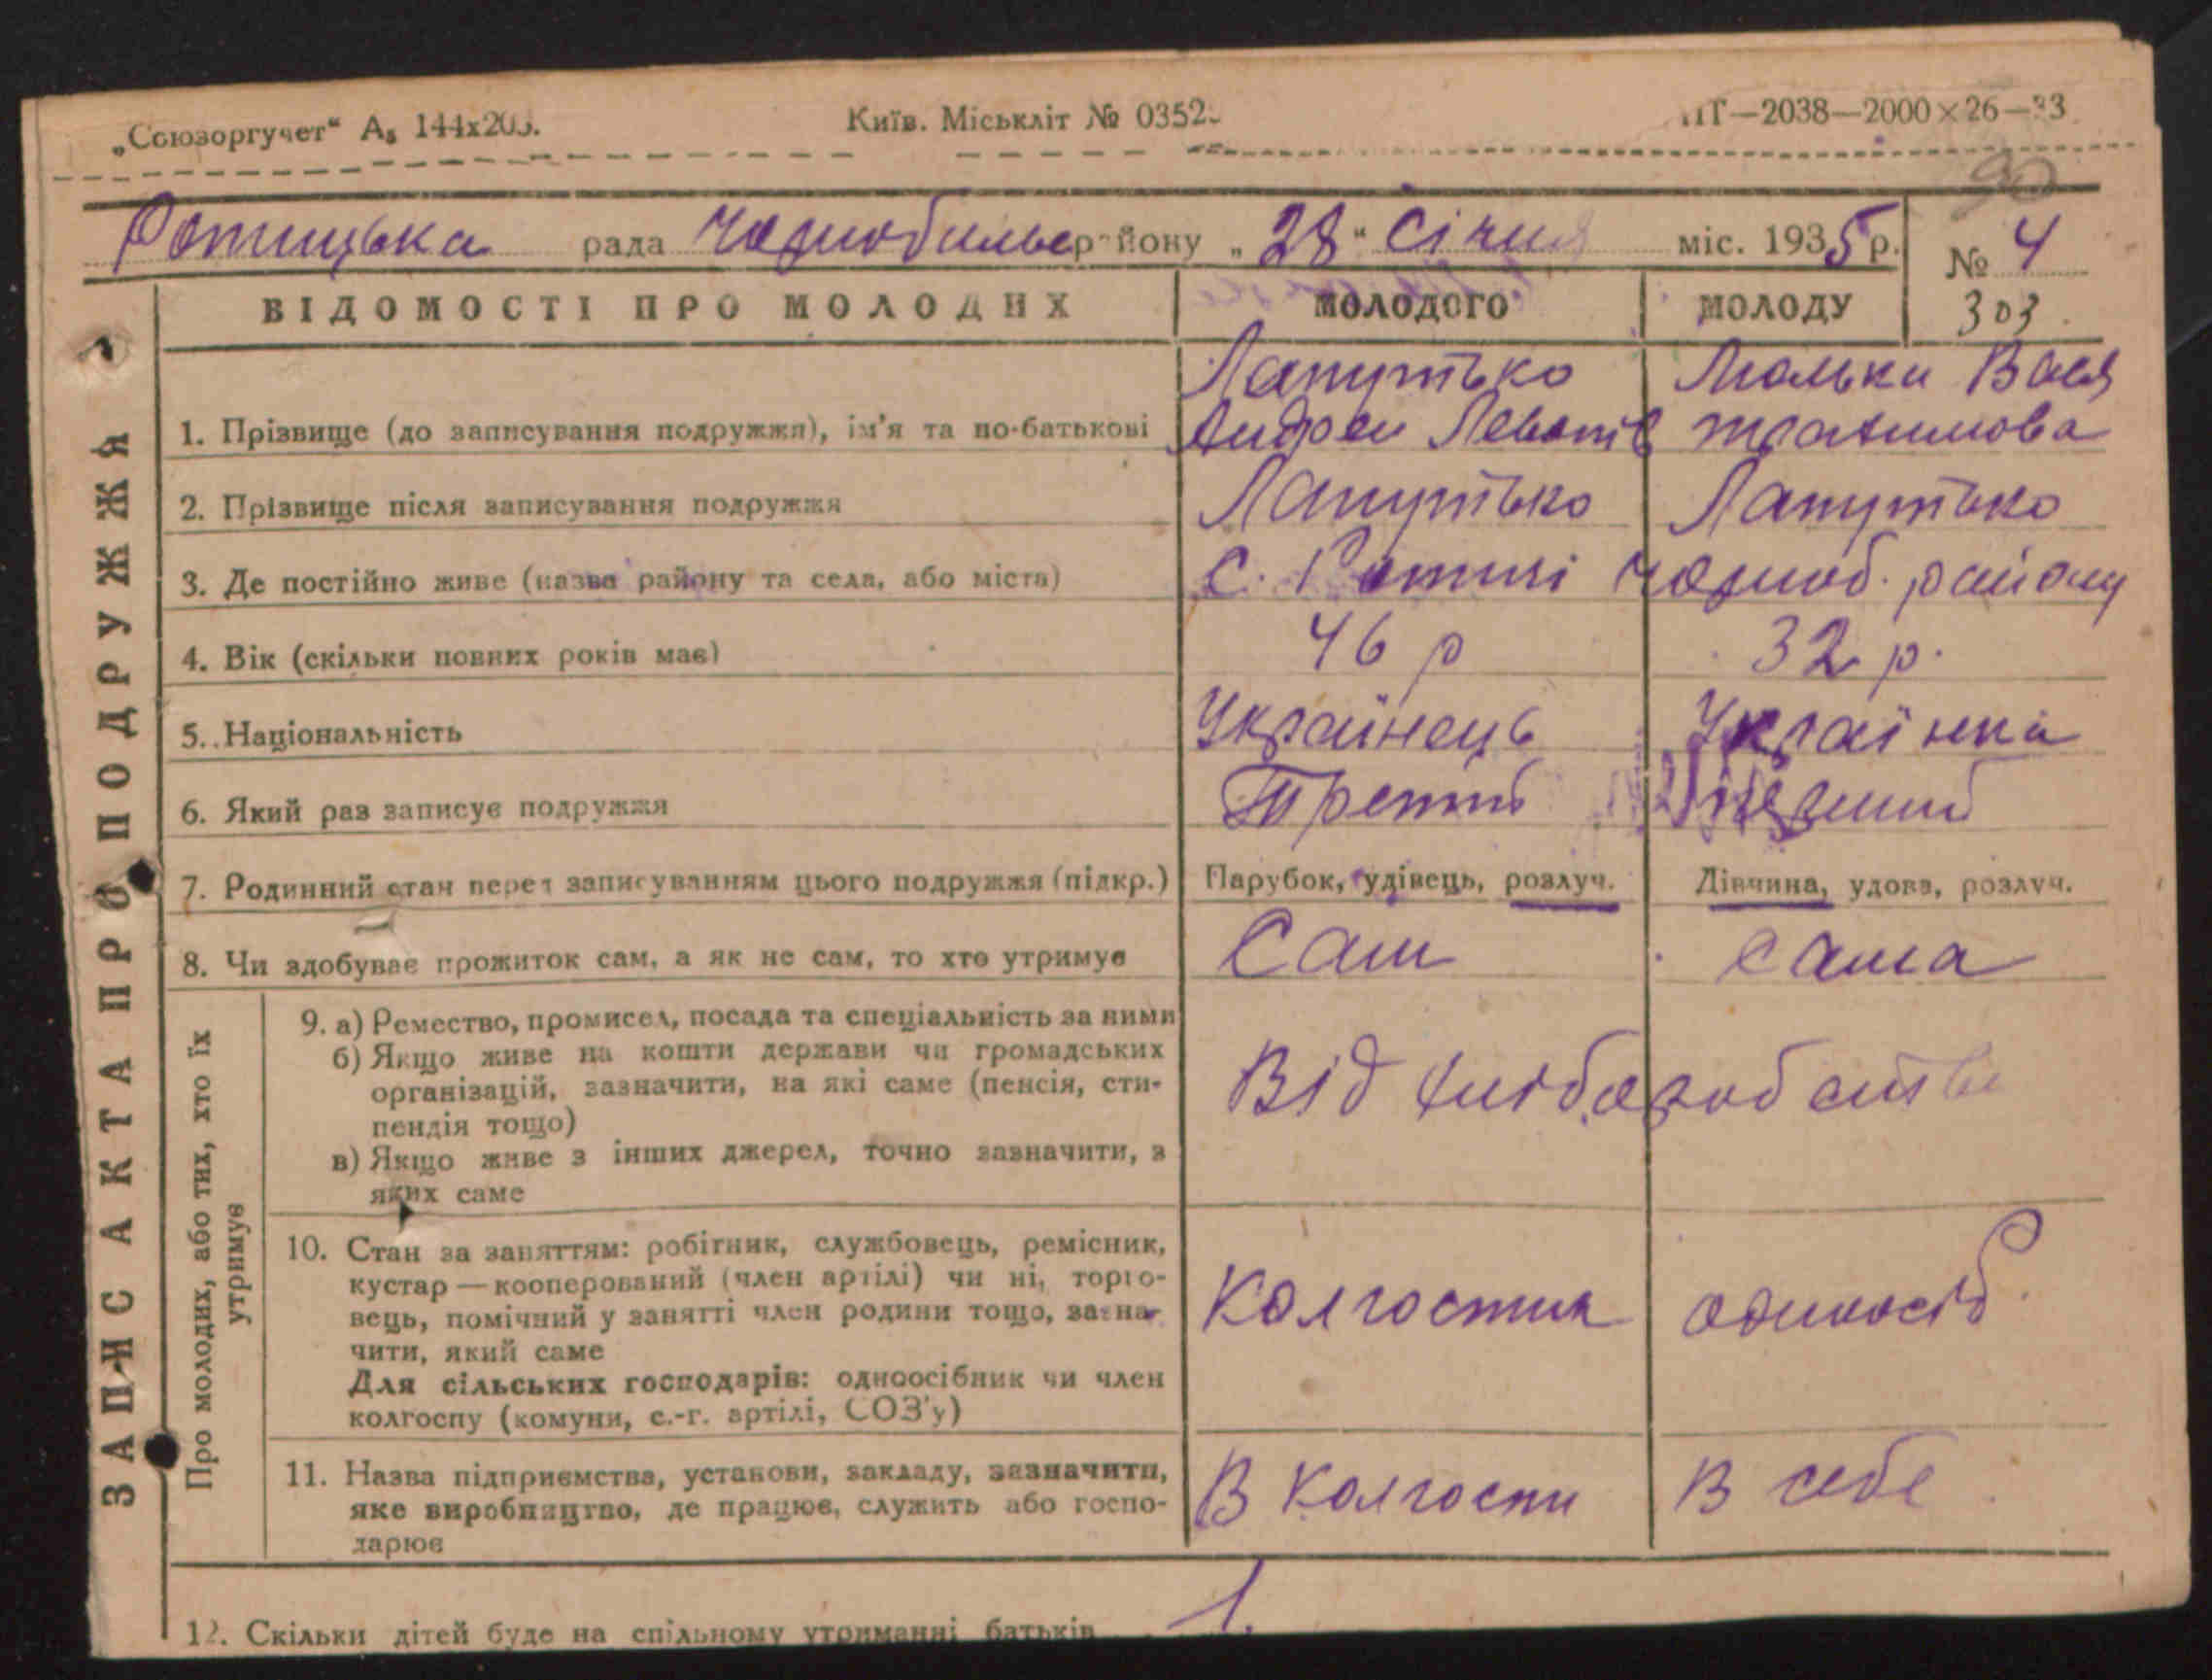 „Союзоргучет“ А₅ 144х203. Київ. Міськліт № 0352 ПТ—2038—2000×26—33
90
Ротицька рада Чорнобильс району „28“ Січня міс. 1935 р. № 4
ВІДОМОСТІ ПРО МОЛОДИХ МОЛОДОГО МОЛОДУ 303
Лапутько Люльки Вася
1. Прізвище (до записування подружжя), ім'я та по-батькові Андреи Левотів трохимова
2. Прізвище після записування подружжя Лапутько Лапутько
3. Де постійно живе (назва району та села, або міста) С. Ротичі Чорноб. району
4. Вік (скільки повних років має) 46 р 32 р.
5. Національність Українець Українка
6. Який раз записує подружжя Третій Перший
7. Родинний стан перед записуванням цього подружжя (підкр.) Парубок, удівець, розлуч. Дівчина, удова, розлуч.
8. Чи здобуває прожиток сам, а як не сам, то хто утримує Сам Сама
9. а) Ремество, промисел, посада та спеціальність за ними
б) Якщо живе на кошти держави чи громадських
організацій, зазначити, на які саме (пенсія, сти-
пендія тощо)
Від хліборобства
в) Якщо живе з інших джерел, точно зазначити, з
яких саме
10. Стан за заняттям: робітник, службовець, ремісник,
кустар — кооперований (член артілі) чи ні, торго-
вець, помічний у занятті член родини тощо, зазна-
чити, який саме
Для сільських господарів: одноосібник чи член
колгоспу (комуни, с.-г. артілі, СОЗ'у)
Колгостик одиносіб.
11. Назва підприємства, установи, закладу, зазначити,
яке виробництво, де працює, служить або госпо-
дарює
В Колгоспи В себе
12. Скільки дітей буде на спільному утриманні батьків 1.
ЗАПИС АКТА ПРО ПОДРУЖЖЯ
Про молодих, або тих, хто їх
утримує